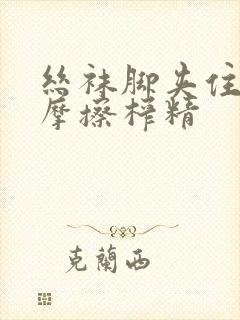 丝袜脚夹住
摩擦榨精
克蘭西